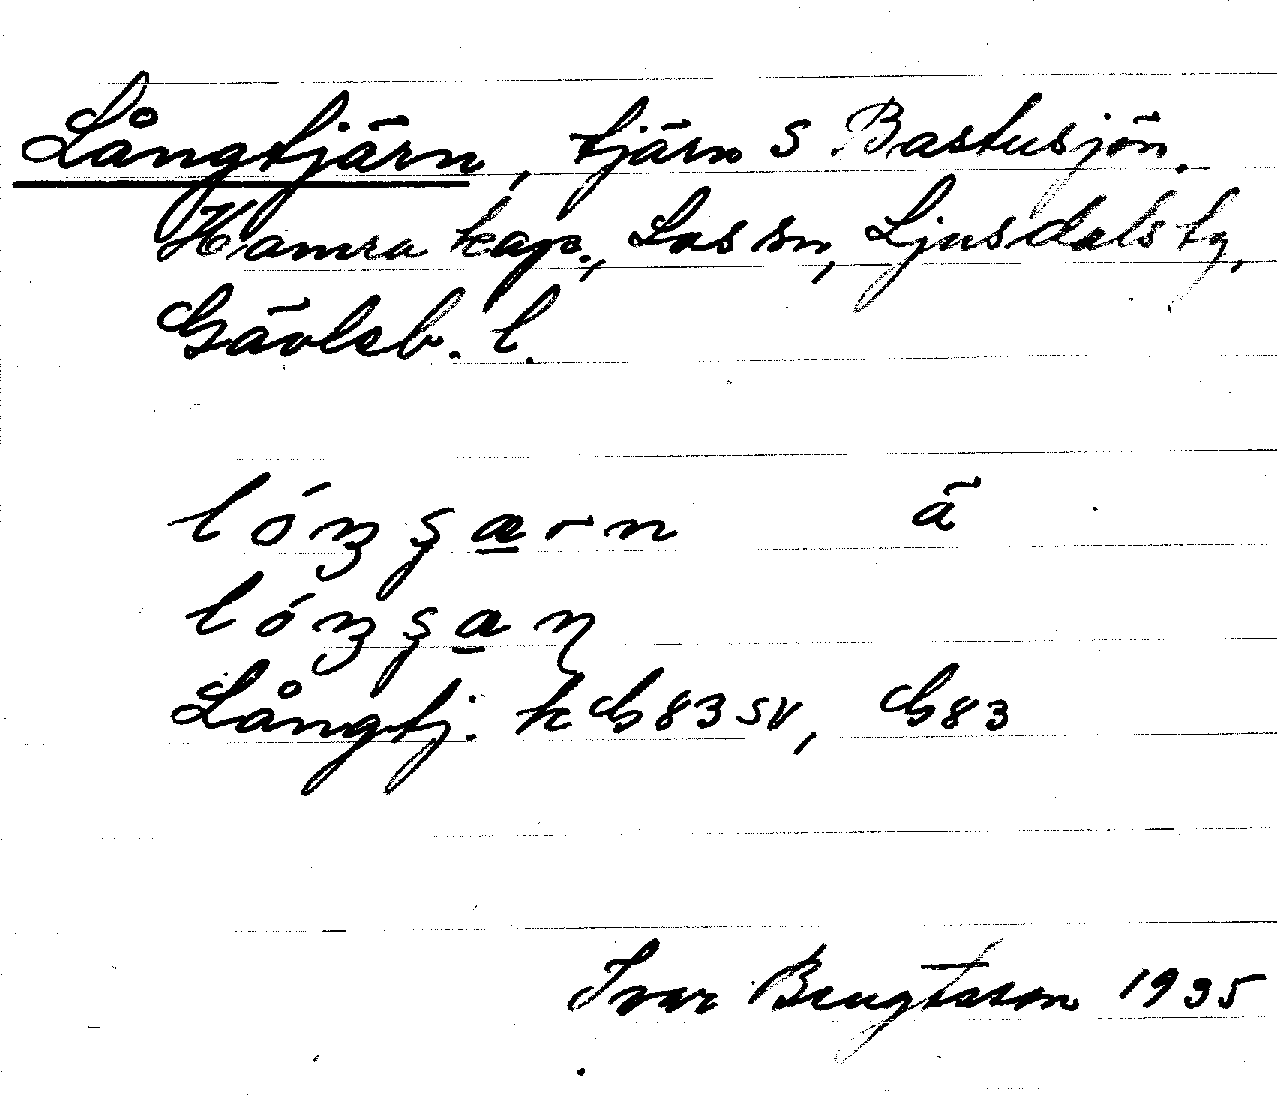 Långtjärn, tjärn S Bastusjön.
Hamra kap., Los sn, Ljusdals tg,
Gävleb. l.
lóŋʂa̲rn ä
lóŋʂa̲ɳ
Långtj. k G83SV, G83
Ivar Bengtsson 1935